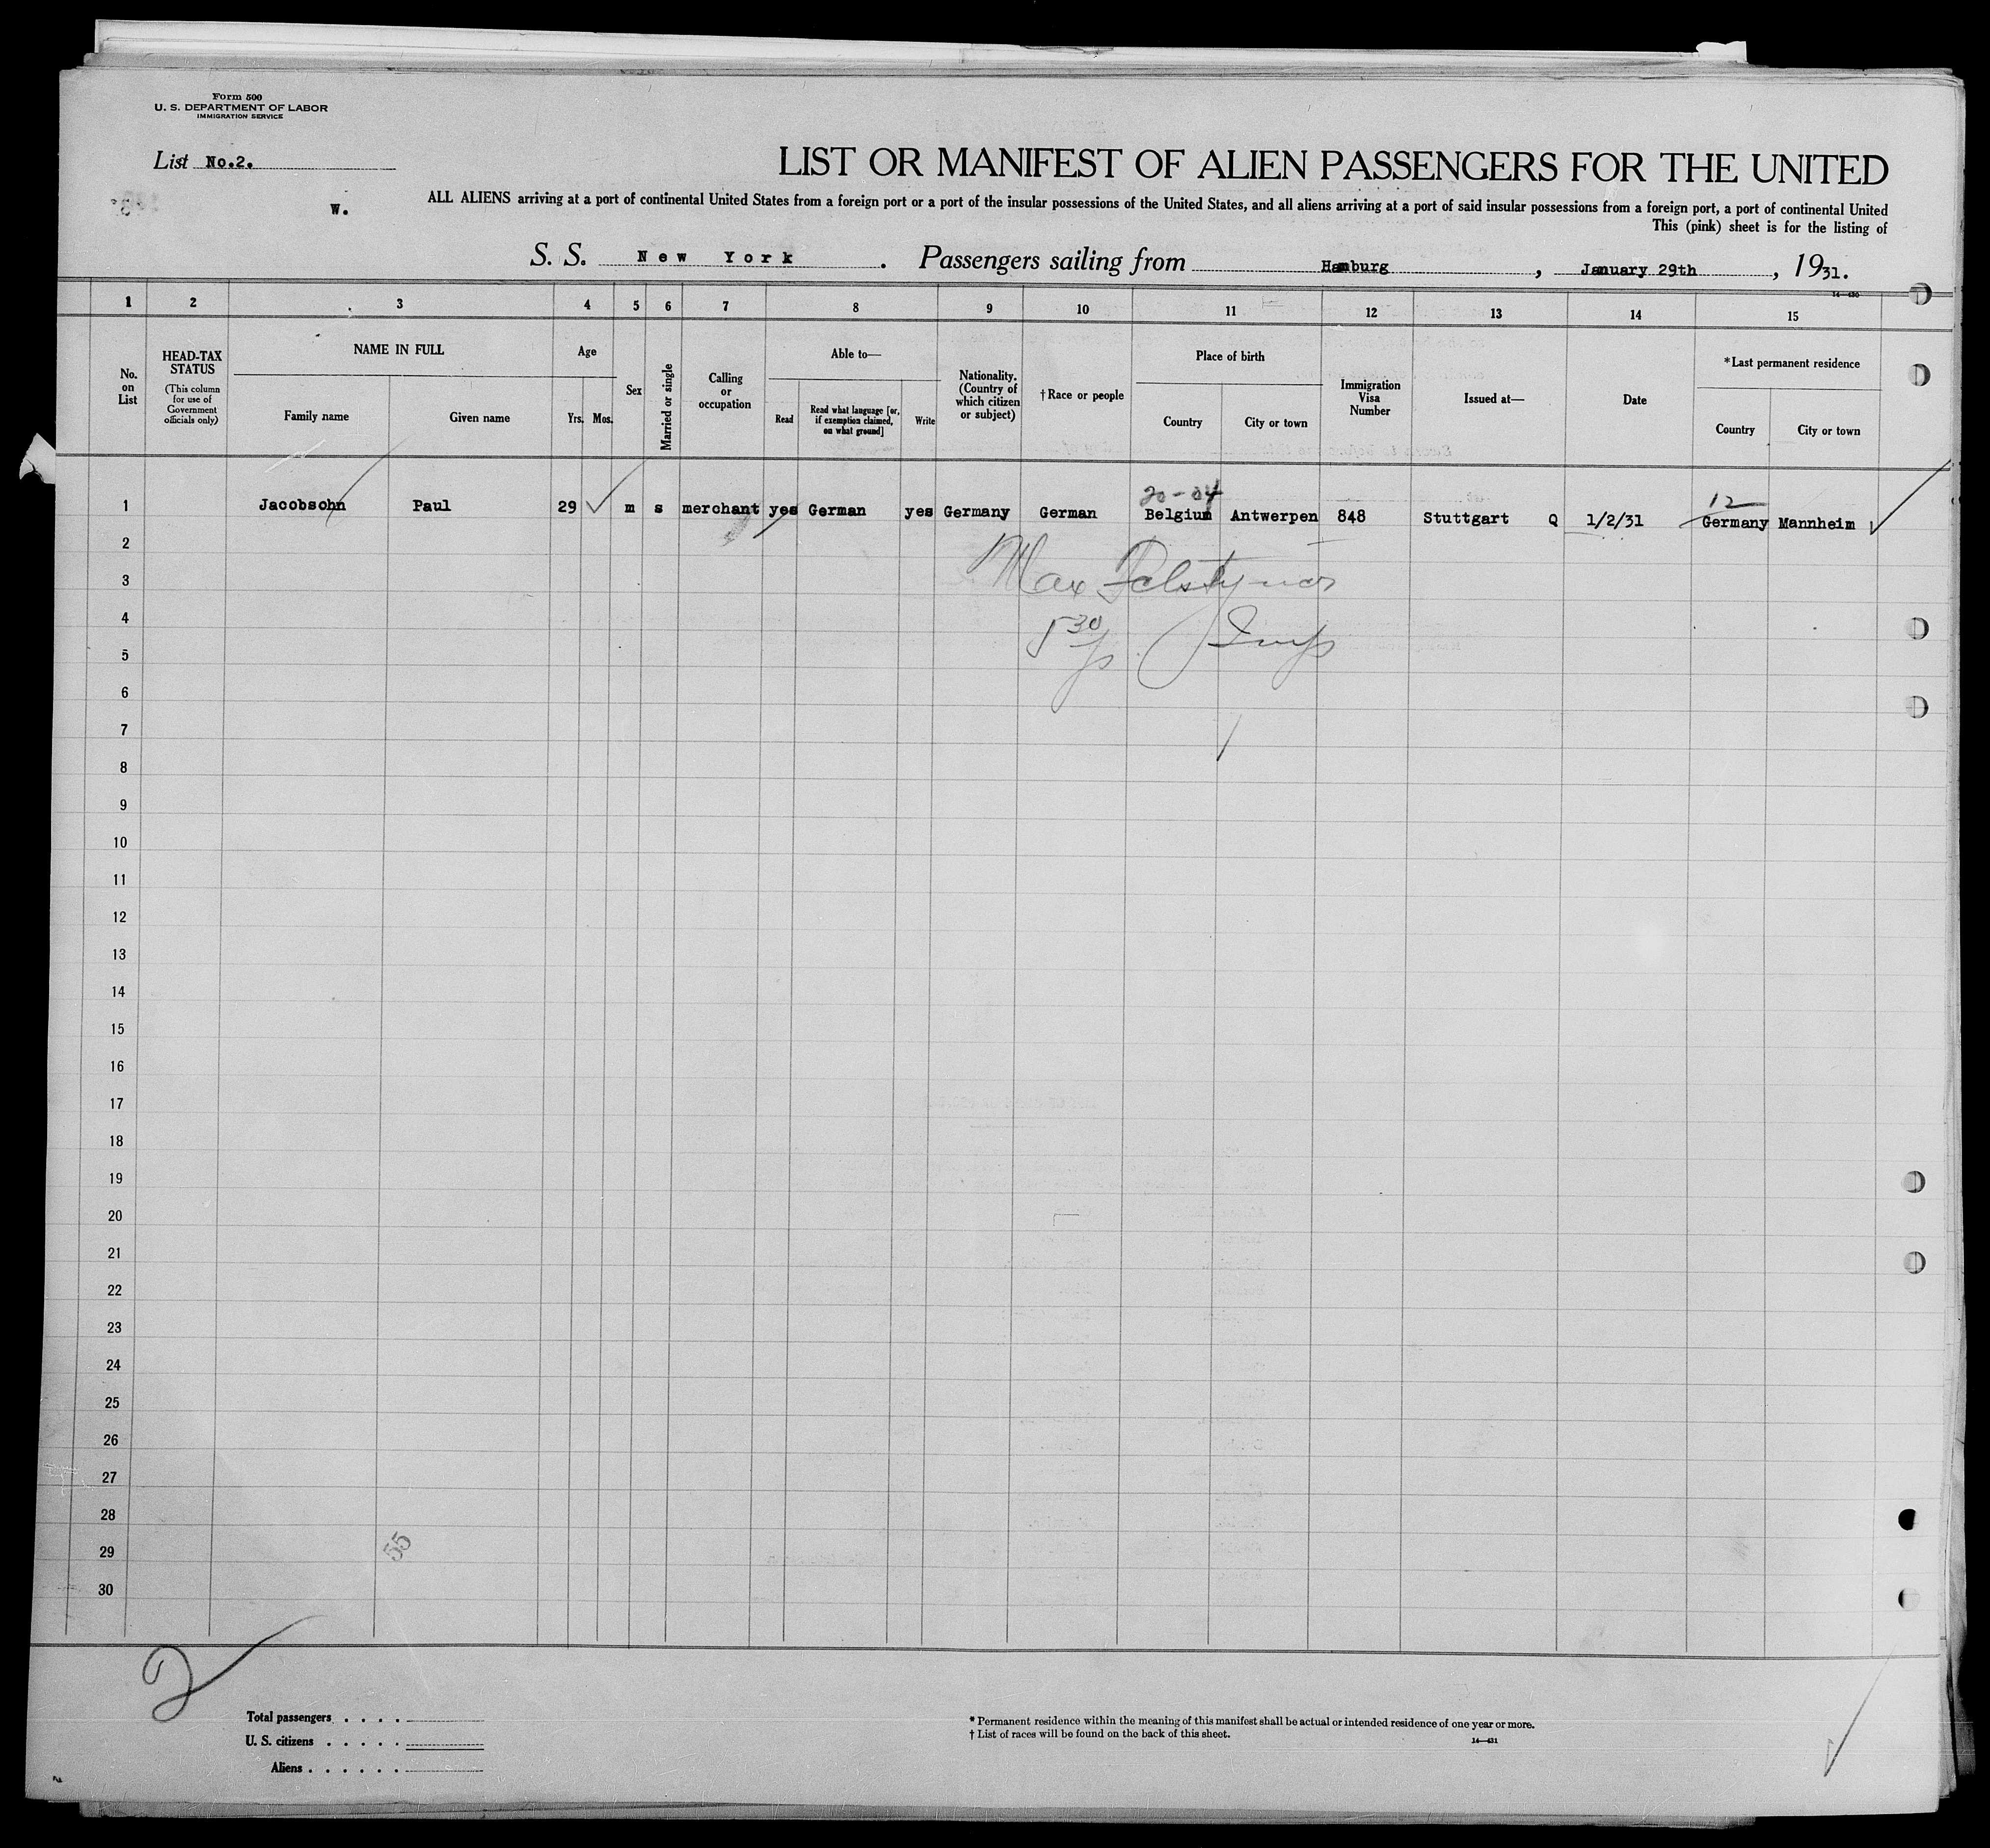 Form 500
U. S. DEPARTMENT OF LABOR
IMMIGRATION SERVICE
List No.2.
LIST OR MANIFEST OF ALIEN PASSENGERS FOR THE UNITED
W.
ALL ALIENS arriving at a port of continental United States from a foreign port or a port of the insular possessions of the United States, and all aliens arriving at a port of said insular possessions from a foreign port, a port of continental United
This (pink) sheet is for the listing of
S. S. New York. Passengers sailing from Hamburg, January 29th, 1931.
1 2 3 4 5 6 7 8 9 10 11 12 13 14 15
No. on List
HEAD-TAX STATUS
(This column for use of Government officials only)
NAME IN FULL
Family name Given name
Age
Yrs. Mos.
Sex
Married or single
Calling or occupation
Able to—
Read
Read what language [or, if exemption claimed, on what ground]
Write
Nationality. (Country of which citizen or subject)
†Race or people
Place of birth
Country City or town
Immigration Visa Number
Issued at—
Date
*Last permanent residence
Country City or town
20-04
12
1 Jacobsohn Paul 29 m s merchant yes German yes Germany German Belgium Antwerpen 848 Stuttgart Q 1/2/31 Germany Mannheim
2
Max
3
4
5 30
5
6
7
8
9
10
11
12
13
14
15
16
17
18
19
20
21
22
23
24
25
26
27
28
29
30
55
2
Total passengers . . . .
U. S. citizens . . . . .
Aliens . . . . . .
* Permanent residence within the meaning of this manifest shall be actual or intended residence of one year or more.
† List of races will be found on the back of this sheet.
14—431